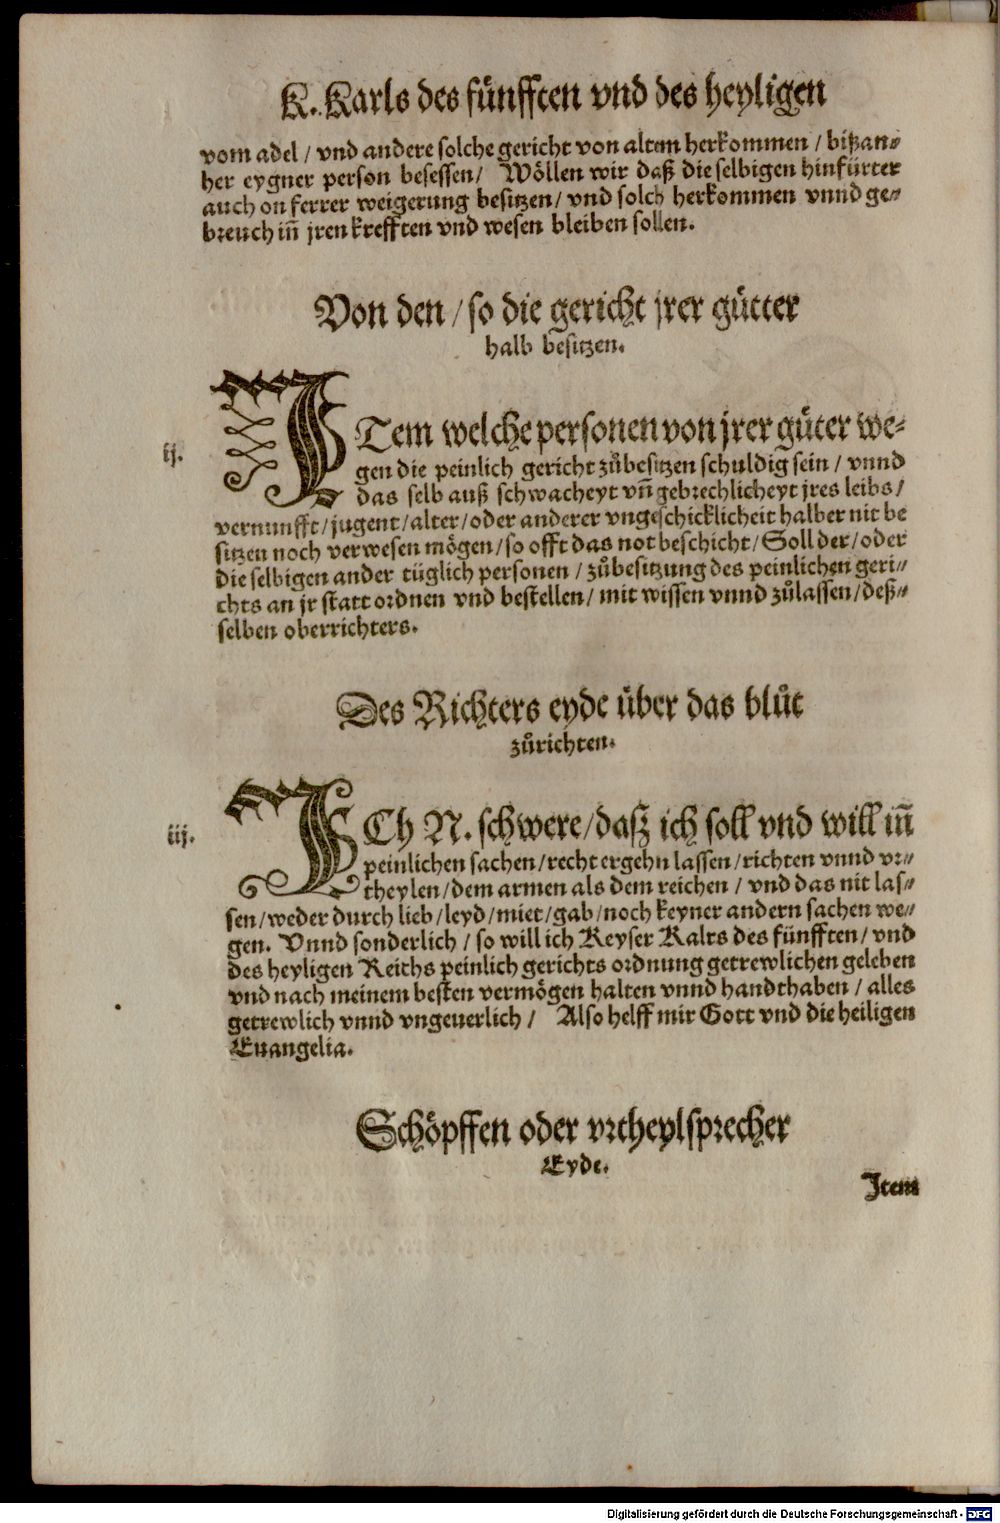 K. Karls des fünfften vnd des heyligen
vom adel / vnd andere solche gericht von altem herkommen / bißan⸗
her eygner person besessen / Wöllen wir daß die selbigen hinfürter
auch on ferrer weigerung besitzen / vnd solch herkommen vnnd ge⸗
breuch iñ jren krefften vnd wesen bleiben sollen.
Von den / so die gericht jrer gütter
halb besitzen.
ij.
ITem welche personen von jrer güter we⸗
gen die peinlich gericht zůbesitzen schuldig sein / vnnd
das selb auß schwacheyt vñ gebrechlicheyt jres leibs /
vernunfft / jugent / alter / oder anderer vngeschicklicheit halber nit be
sitzen noch verwesen mögen / so offt das not beschicht / Soll der / oder
die selbigen ander tüglich personen / zůbesitzung des peinlichen geri⸗
chts an jr statt ordnen vnd bestellen / mit wissen vnnd zůlassen / deß⸗
selben oberrichters.
Des Richters eyde über das blůt
zůrichten.
iij.
ICh N. schwere / daß ich soll vnd will iñ
peinlichen sachen / recht ergehn lassen / richten vnnd vr⸗
theylen / dem armen als dem reichen / vnd das nit las⸗
sen / weder durch lieb / leyd / miet / gab / noch keyner andern sachen we⸗
gen. Vnnd sonderlich / so will ich Keyser Kalrs des fünfften / vnd
des heyligen Reichs peinlich gerichts ordnung getrewlichen geleben
vnd nach meinem besten vermögen halten vnnd handthaben / alles
getrewlich vnnd vngeuerlich / Also helff mir Gott vnd die heiligen
Euangelia.
Schöpffen oder vrtheylsprecher
Eyde.
Item
Digitalisierung gefördert durch die Deutsche Forschungsgemeinschaft - DFG